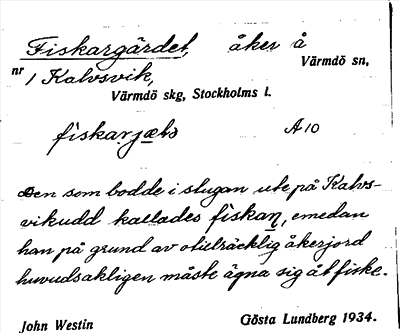 Fiskargärdet, åker å Värmdö sn,
nr 1 Kalvsvik,
Värmdö skg, Stockholms l.
fiskarjæḷs A10
Den som bodde i stugan ute på Kalvs-
vikudd kallades fiskaṇ, emedan
han på grund av otillräcklig åkerjord
huvudsakligen måste ägna sig åt fiske.
John Westin Gösta Lundberg 1934.